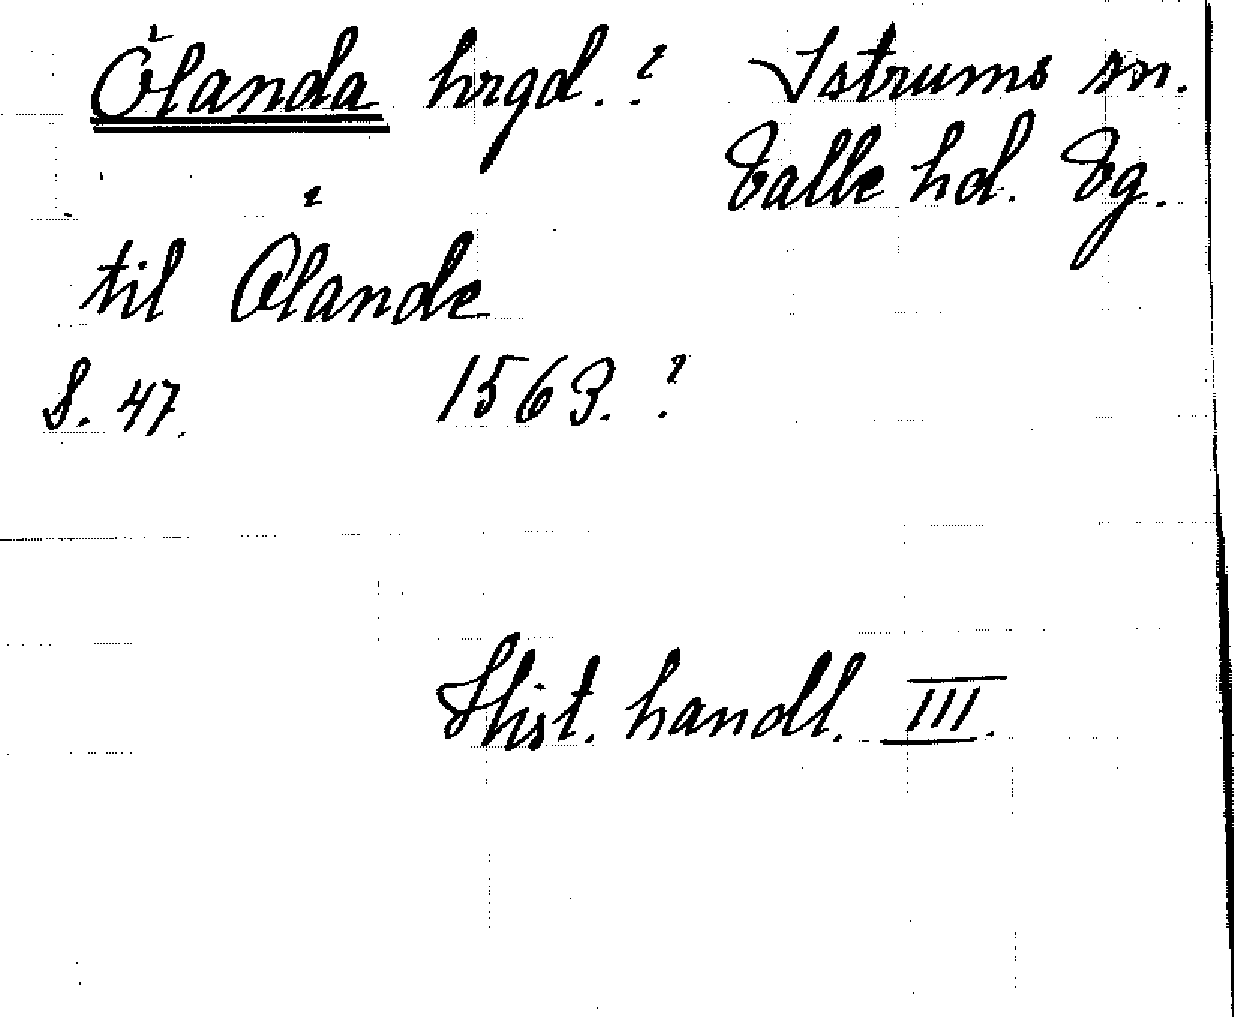 Ölanda hrgd.? Istrums sn.
Valle hd. Vg.
til Ölande
S. 47. 1563.?
Hist. handl. III.